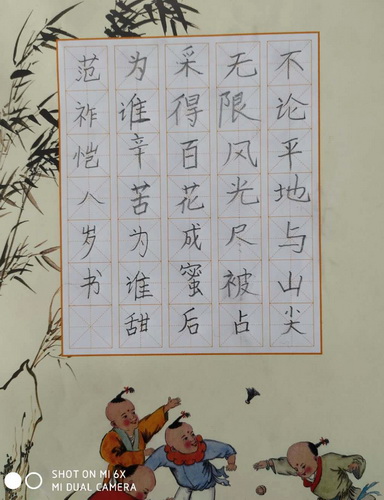 不论平地与山尖
无限风光尽被占
采得百花成蜜后
为谁辛苦为谁甜
范祚恺八岁书
SHOT ON MI 6X
MI DUAL CAMERA